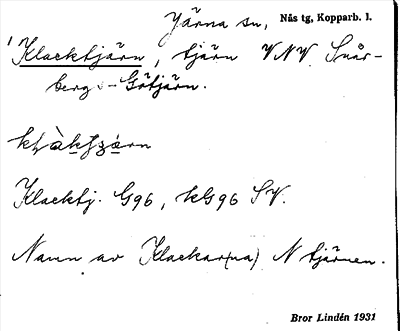 Järna sn, Nås tg, Kopparb. l.
Klacktjärn, tjärn VNV Snår-
berg - Götjärn.
Klacktj. G96, kG96 SV.
Namn av Klackar(na) N tjärnen.
Bror Lindén 1931